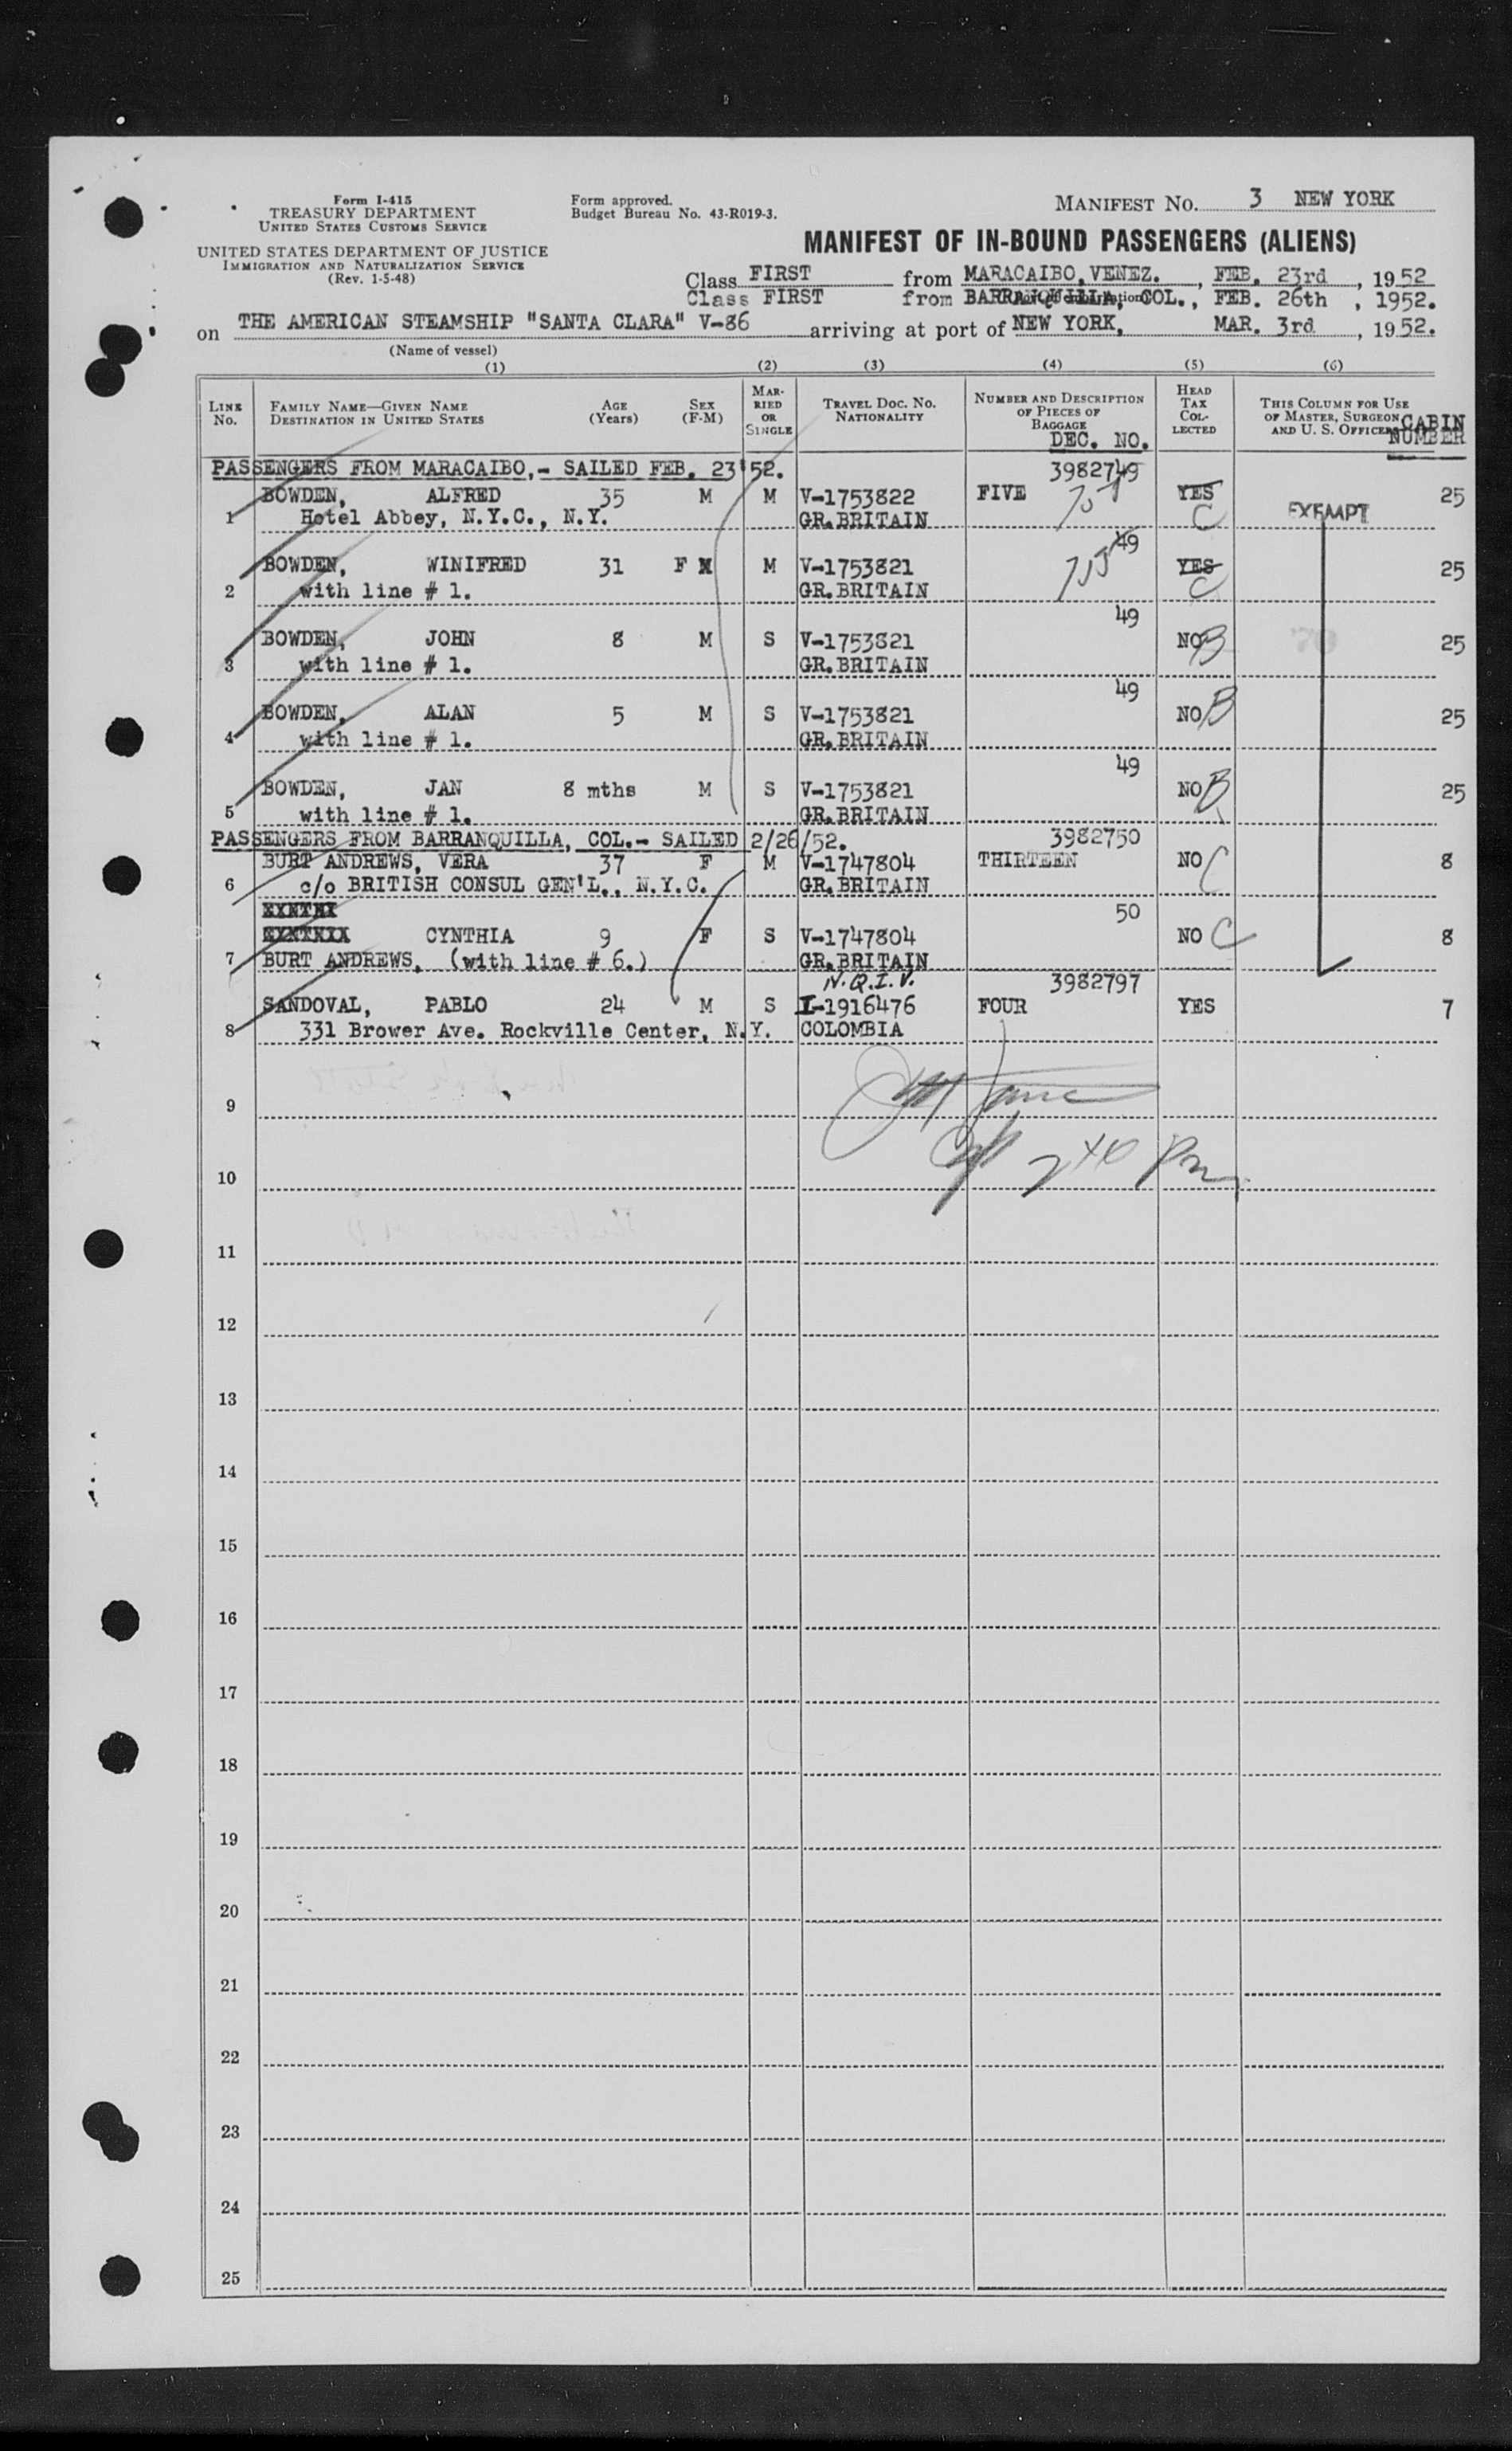 Form I-415
TREASURY DEPARTMENT
UNITED STATES CUSTOMS SERVICE
UNITED STATES DEPARTMENT OF JUSTICE
IMMIGRATION AND NATURALIZATION SERVICE
(Rev. 1-5-48)
Form approved.
Budget Bureau No. 43-R019-3.
MANIFEST No. 3 NEW YORK
MANIFEST OF IN-BOUND PASSENGERS (ALIENS)
Class FIRST from MARACAIBO, VENEZ., FEB. 23rd, 1952
Class FIRST from BARRANQUILLA, COL., FEB. 26th, 1952.
on THE AMERICAN STEAMSHIP "SANTA CLARA" V-86 arriving at port of NEW YORK, MAR. 3rd, 1952.
(Name of vessel)
(1) (2) (3) (4) (5) (6)
LINE No. FAMILY NAME—GIVEN NAME DESTINATION IN UNITED STATES AGE (Years) SEX (F-M) MARRIED OR SINGLE TRAVEL DOC. NO. NATIONALITY NUMBER AND DESCRIPTION OF PIECES OF BAGGAGE DEC. NO. HEAD TAX COLLECTED THIS COLUMN FOR USE OF MASTER, SURGEON AND U. S. OFFICERS CABIN NUMBER
PASSENGERS FROM MARACAIBO,- SAILED FEB. 23'52. 3982749
BOWDEN, ALFRED 35 M M V-1753822 FIVE YES 25
1 Hotel Abbey, N.Y.C., N.Y. GR.BRITAIN C EXEMPT
49
BOWDEN, WINIFRED 31 F M V-1753821 YES 25
2 with line # 1. GR.BRITAIN C
49
BOWDEN, JOHN 8 M S V-1753821 NO B 25
3 with line # 1. GR.BRITAIN
49
BOWDEN, ALAN 5 M S V-1753821 NO B 25
4 with line # 1. GR.BRITAIN
49
BOWDEN, JAN 8 mths M S V-1753821 NO B 25
5 with line # 1. GR.BRITAIN
PASSENGERS FROM BARRANQUILLA, COL.- SAILED 2/26/52. 3982750
BURT ANDREWS, VERA 37 F M V-1747804 THIRTEEN NO C 8
6 c/o BRITISH CONSUL GEN'L., N.Y.C. GR.BRITAIN
50
CYNTHIA 9 F S V-1747804 NO C 8
7 BURT ANDREWS, (with line # 6.) GR.BRITAIN
N.Q.I.V. 3982797
SANDOVAL, PABLO 24 M S I-1916476 FOUR YES 7
8 331 Brower Ave. Rockville Center, N.Y. COLOMBIA
9
10
11
12
13
14
15
16
17
18
19
20
21
22
23
24
25